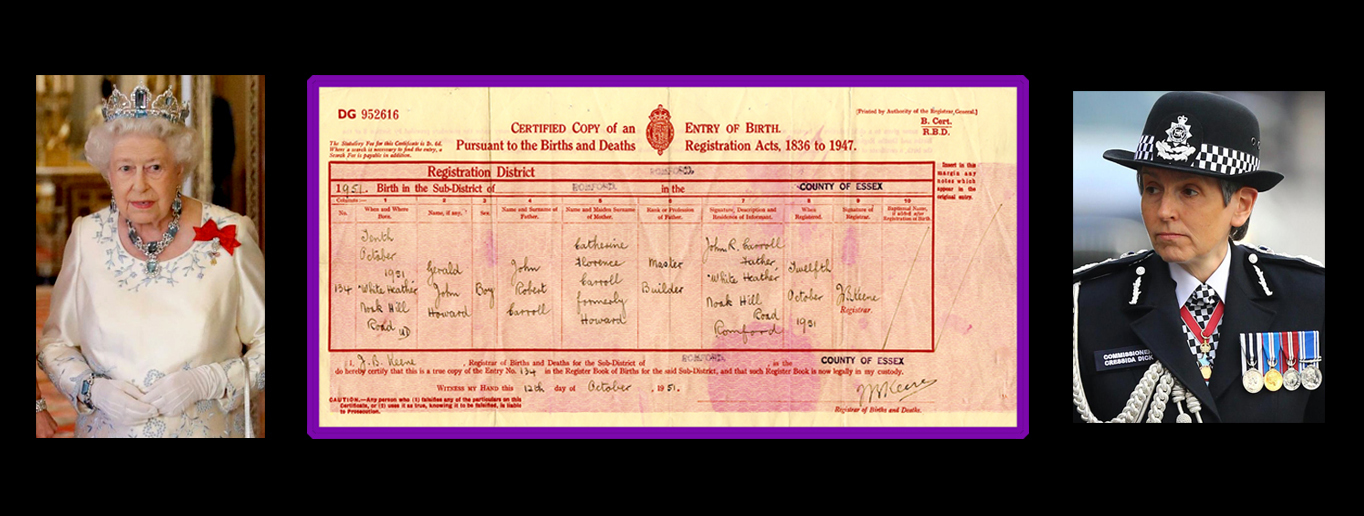 DG 952616
[Printed by Authority of the Registrar General.]
B. Cert.
R.B.D.
CERTIFIED COPY OF AN ENTRY OF BIRTH.
Pursuant to the Births and Deaths Registration Acts, 1836 to 1947.
The Statutory Fee for this Certificate is 2s. 6d.
Where a search is necessary to find the entry, a
Search Fee is payable in addition.
Insert in this
margin any
notes which
appear in the
original entry.
Registration District ROMFORD
1951. Birth in the Sub-District of ROMFORD in the COUNTY OF ESSEX
Columns:— 1 2 3 4 5 6 7 8 9 10
No. When and Where Born. Name, if any. Sex. Name and Surname of Father. Name and Maiden Surname of Mother. Rank or Profession of Father. Signature, Description and Residence of Informant. When Registered. Signature of Registrar. Baptismal Name, if added after Registration of Birth.
134
Tenth
October
1951
"White Heather"
Noak Hill
Road
UD
Gerald
John
Howard
Boy
John
Robert
Carroll
Catherine
Florence
Carroll
formerly
Howard
Master
Builder
John R. Carroll
Father
"White Heather"
Noak Hill
Road
Romford
Twelfth
October
1951
J B Keene
Registrar.
I, J. B. Keene, Registrar of Births and Deaths for the Sub-District of ROMFORD, in the COUNTY OF ESSEX
do hereby certify that this is a true copy of the Entry No. 134 in the Register Book of Births for the said Sub-District, and that such Register Book is now legally in my custody.
WITNESS MY HAND this 12th day of October, 1951.
CAUTION.—Any person who (1) falsifies any of the particulars on this
Certificate, or (2) uses it as true, knowing it to be falsified, is liable
to Prosecution.
J B Keene
Registrar of Births and Deaths.
COMMISSIONER
CRESSIDA DICK